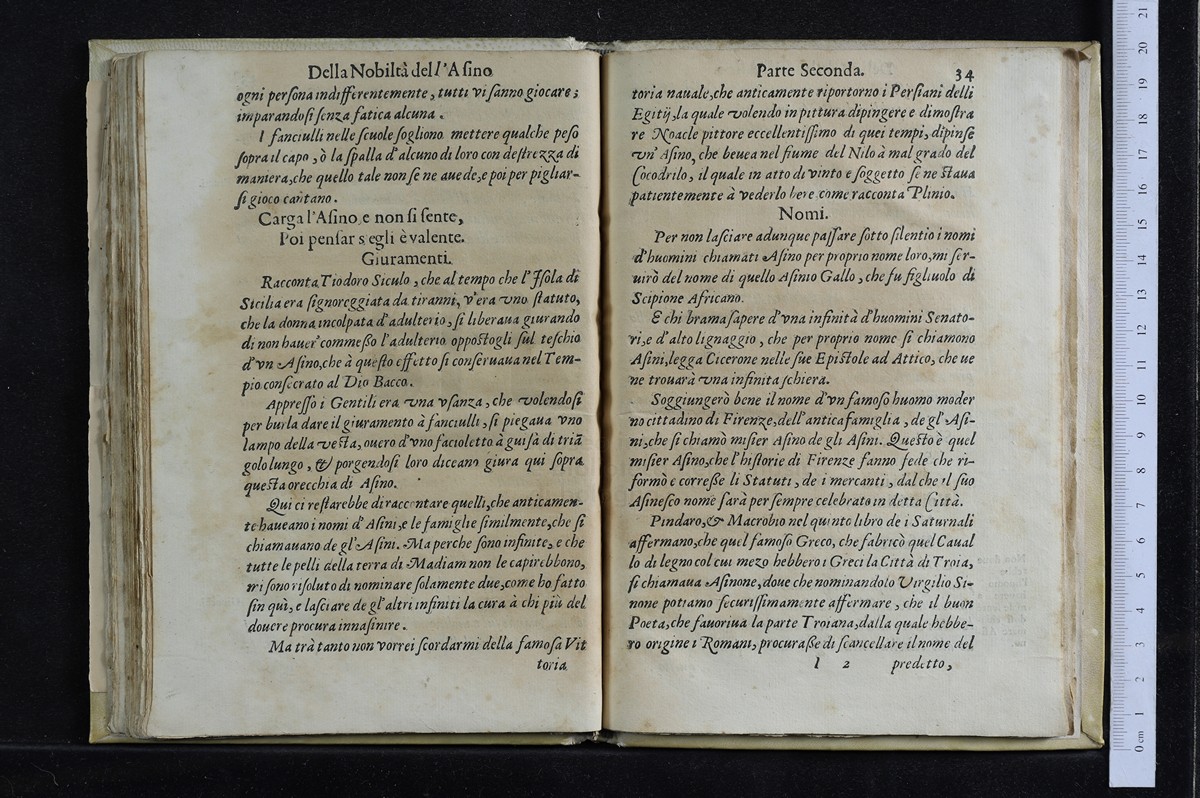 Della Nobiltà dell'Asino
ogni persona indifferentemente, tutti vi sanno giocare;
imparandosi senza fatica alcuna.
I fanciulli nelle scuole sogliono mettere qualche peso
sopra il capo, ò la spalla d'alcuno di loro con destrezza di
maniera, che quello tale non se ne auede, e poi per pigliar-
si gioco cantano.
Carga l'Asino, e non si sente,
Poi pensar s'egli è valente.
Giuramenti.
Racconta Tiodoro Siculo, che al tempo che l'Isola di
Sicilia era signoreggiata da tiranni, v'era vno statuto,
che la donna incolpata d'adulterio, si liberaua giurando
di non hauer' commesso l'adulterio oppostogli sul teschio
d'vn Asino, che à questo effetto si conseruaua nel Tem-
pio consecrato al Dio Bacco.
Appresso i Gentili era vna vsanza, che volendosi
per burla dare il giuramento à fanciulli, si piegaua vno
lampo della vesta, ouero d'vno facioletto à guisa di triā
golo lungo, & porgendosi loro diceano giura qui sopra
questa orecchia di Asino.
Qui ci restarebbe di raccontare quelli, che anticamen-
te haueano i nomi d'Asini, e le famiglie similmente, che si
chiamauano de gl'Asini. Ma perche sono infinite, e che
tutte le pelli della terra di Madiam non le capirebbono,
mi sono risoluto di nominare solamente due, come ho fatto
sin quì, e lasciare de gl'altri infiniti la cura à chi più del
douere procura innasinire.
Ma trà tanto non vorrei scordarmi della famosa Vit
toria
Parte Seconda. 34
toria nauale, che anticamente riportorno i Persiani delli
Egitij, la quale volendo in pittura dipingere e dimostra
re Noacle pittore eccellentissimo di quei tempi, dipinse
vn' Asino, che beuea nel fiume del Nilo à mal grado del
Cocodrilo, il quale in atto di vinto e soggetto se ne staua
patientemente à vederlo bere come racconta Plinio.
Nomi.
Per non lasciare adunque passare sotto silentio i nomi
d'huomini chiamati Asino per proprio nome loro, mi ser-
uirò del nome di quello Asinio Gallo, che fu figliuolo di
Scipione Africano.
E chi brama sapere d'vna infinità d'huomini Senato-
ri, e d'alto lignaggio, che per proprio nome si chiamono
Asini, legga Cicerone nelle sue Epistole ad Attico, che ue
ne trouarà vna infinita schiera.
Soggiungerò bene il nome d'vn famoso huomo moder
no cittadino di Firenze, dell'antica famiglia, de gl'Asi-
ni, che si chiamò misier Asino de gli Asini. Questo è quel
misier Asino, che l'historie di Firenze fanno fede che ri-
formò e corresse li Statuti, de i mercanti, dal che il suo
Asinesco nome sarà per sempre celebrato in detta Città.
Pindaro, & Macrobio nel quinto libro de i Saturnali
affermano, che quel famoso Greco, che fabricò quel Caual
lo di legno col cui mezo hebbero i Greci la Città di Troia,
si chiamaua Asinone, doue che nominandolo Virgilio Si-
none potiamo securissimamente affermare, che il buon
Poeta, che fauoriua la parte Troiana, dalla quale hebbe-
ro origine i Romani, procurasse di scancellare il nome del
I 2 predetto,